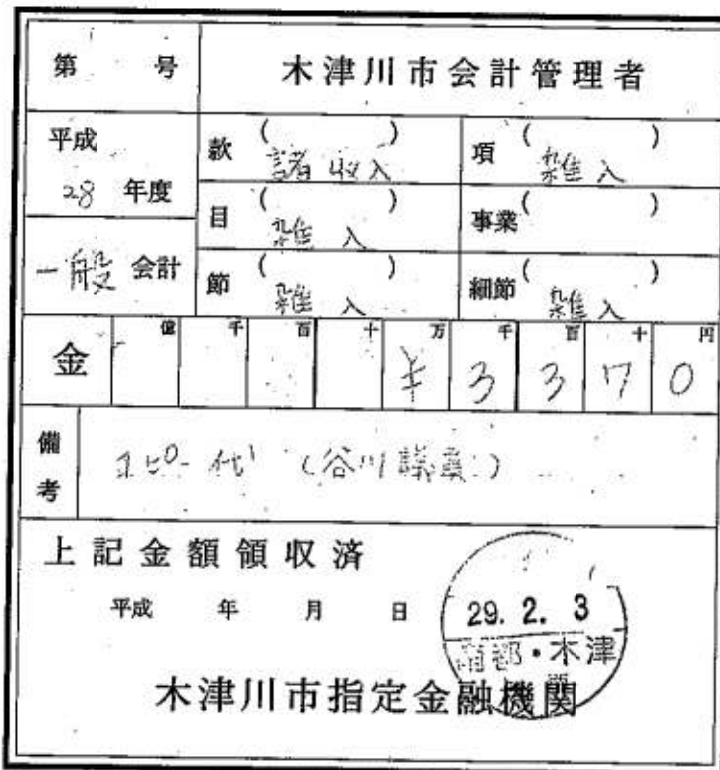 第 号 木津川市会計管理者
平成
28 年度
款 ( ) 諸収入
項 ( ) 雑入
目 ( ) 雑入
事業 ( )
一般 会計
節 ( ) 雑入
細節 ( ) 雑入
金 億 千 百 十 万 千 百 十 円
¥ 3 3 7 0
備考 コピー代 (谷川議員)
上記金額領収済
平成 年 月 日
29. 2. 3
南都・木津
木津川市指定金融機関